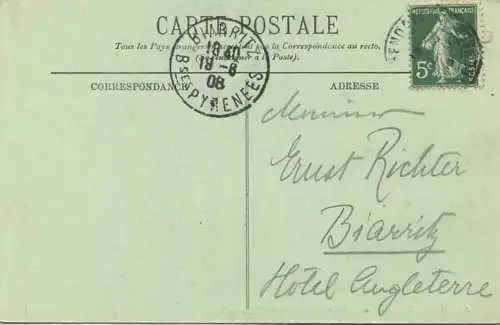 CARTE POSTALE
Tous les Pays étrangers n'acceptent pas la Correspondance au recto.
(Se renseigner à la Poste).
BIARRITZ
18 40
18 -8
08
BSES PYRENEES
REPUBLIQUE FRANÇAISE
5c
CORRESPONDANCE
ADRESSE
Monsieur
Ernst Richter
Biarritz
Hotel Angleterre